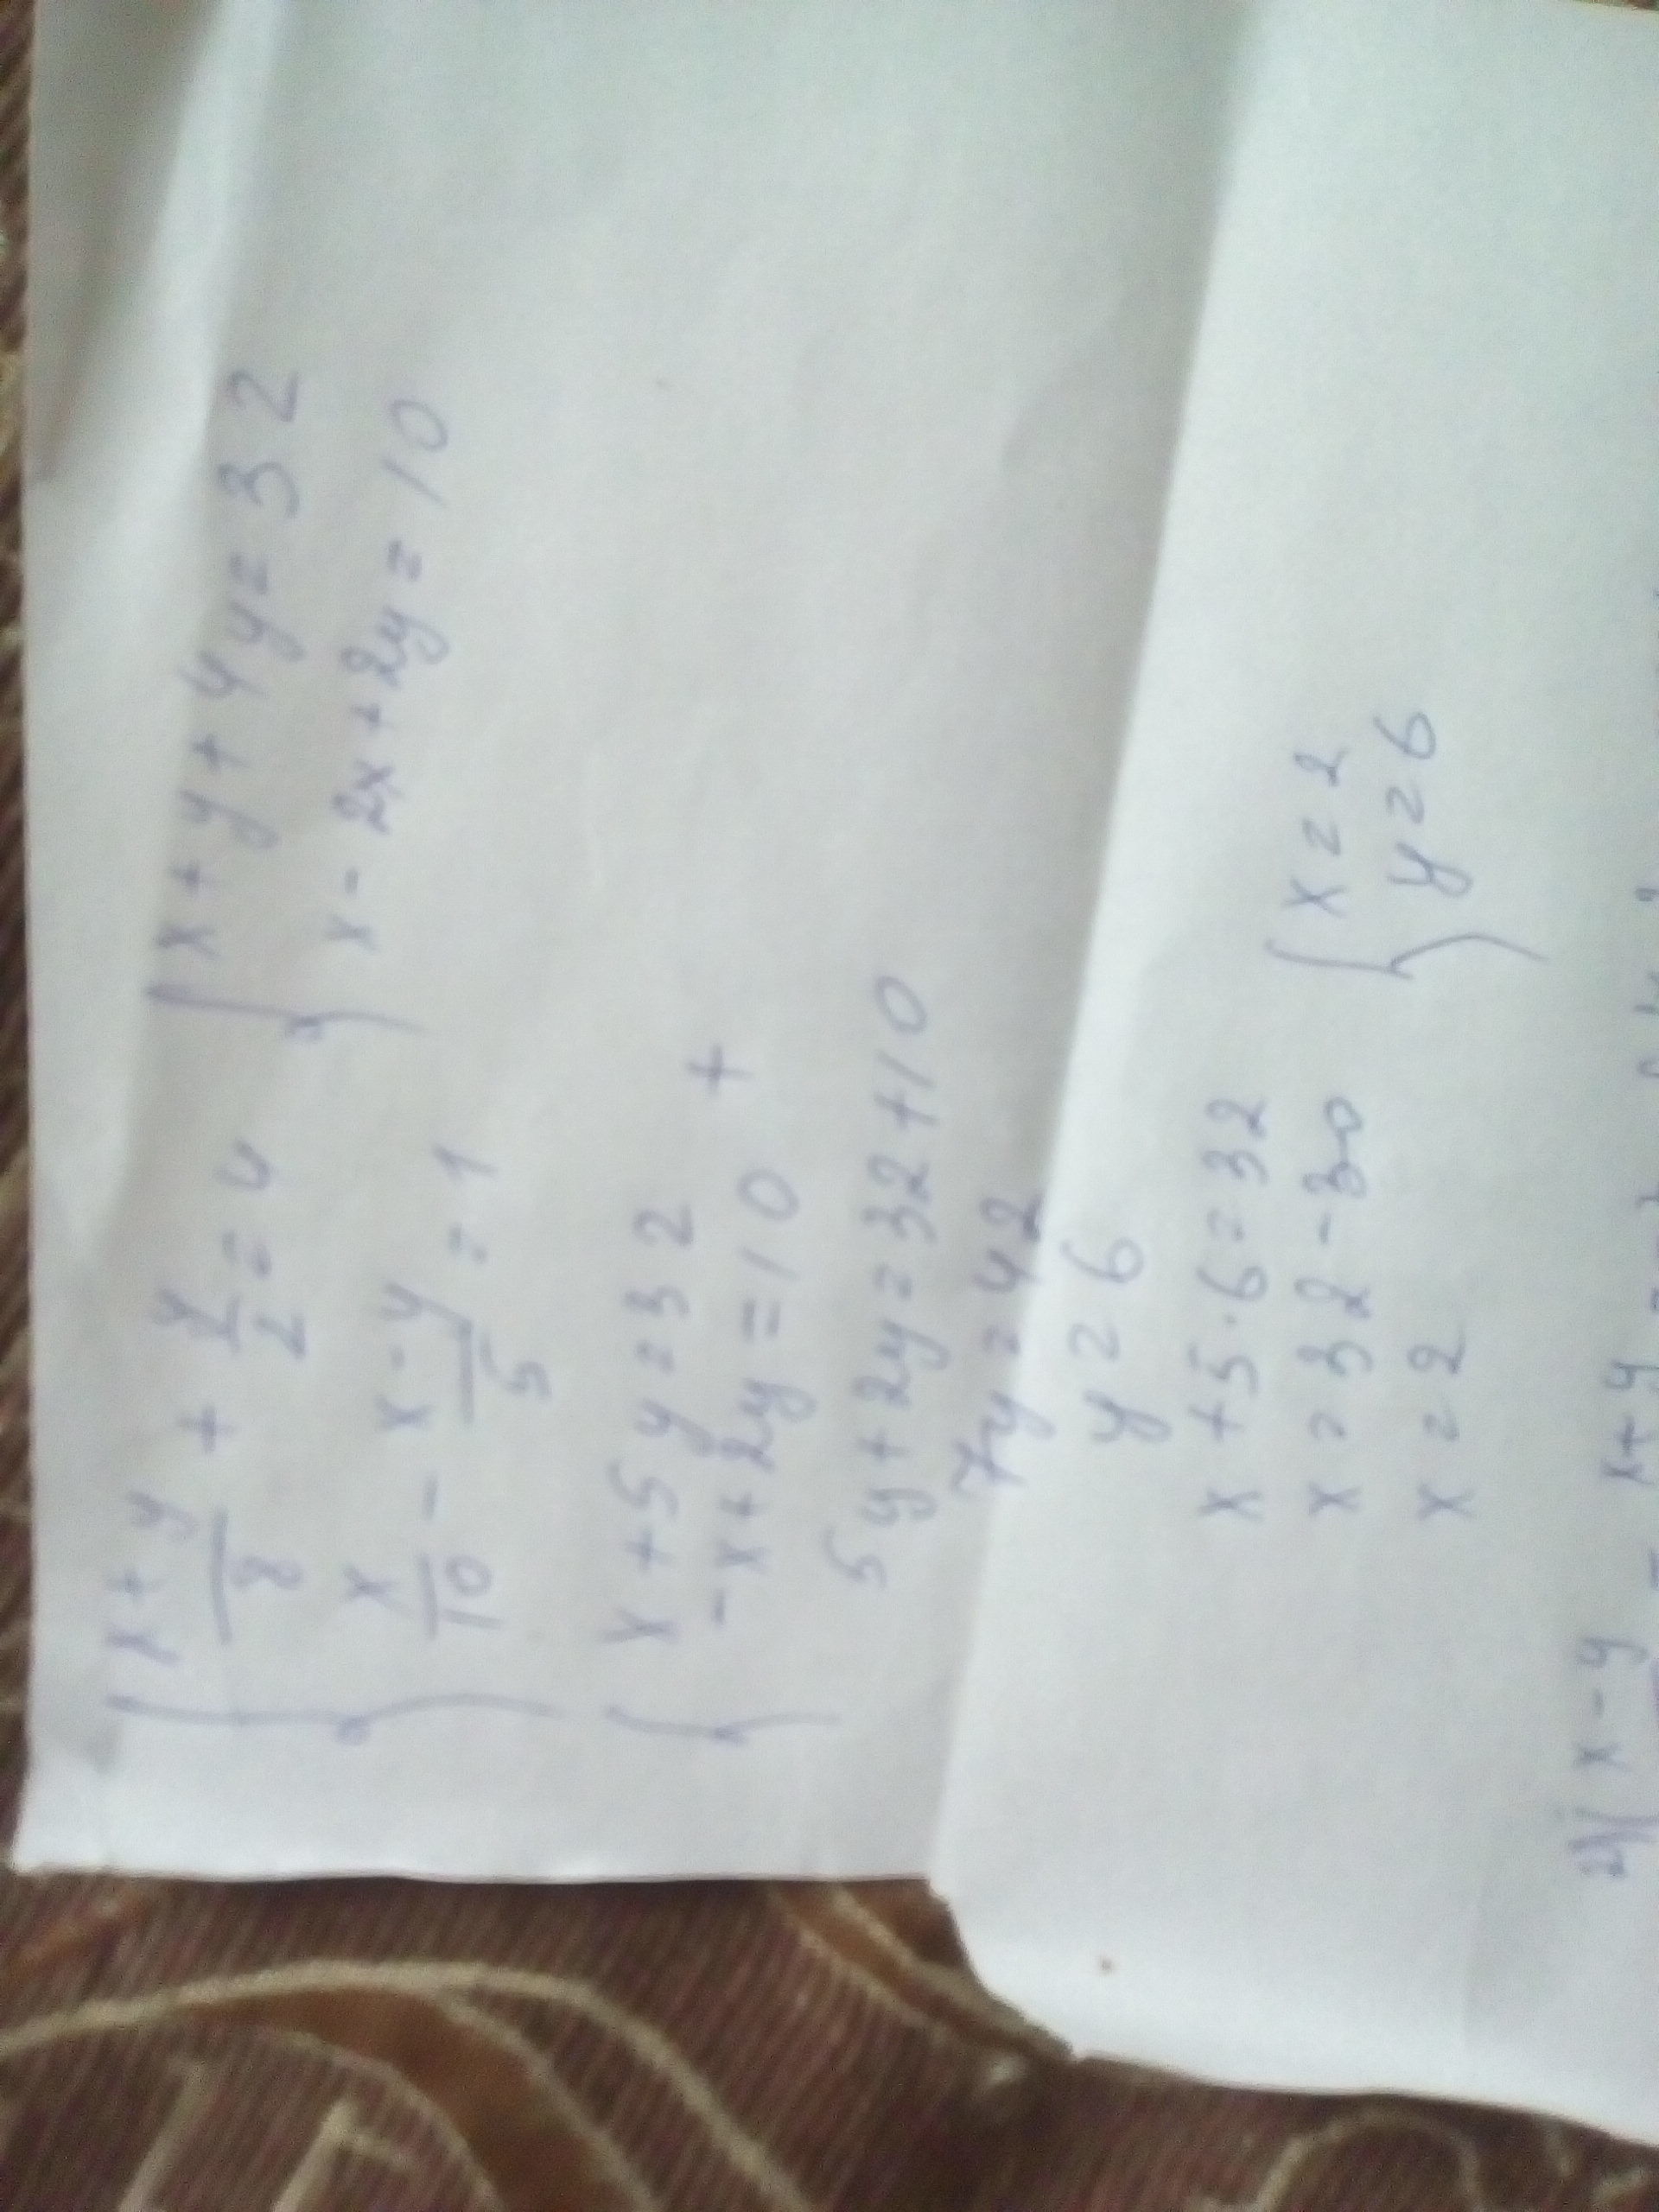 { x+y/8 + y/2 = 4
x/10 - x-y/5 = 1
{ x+y+4y=32
x-2x+2y=10
{ x+5y=32
-x+2y=10 +
5y+2y=32+10
7y=42
y=6
x+5·6=32
x=32-30
x=2
{ x=2
y=6
2){ x-y x+y